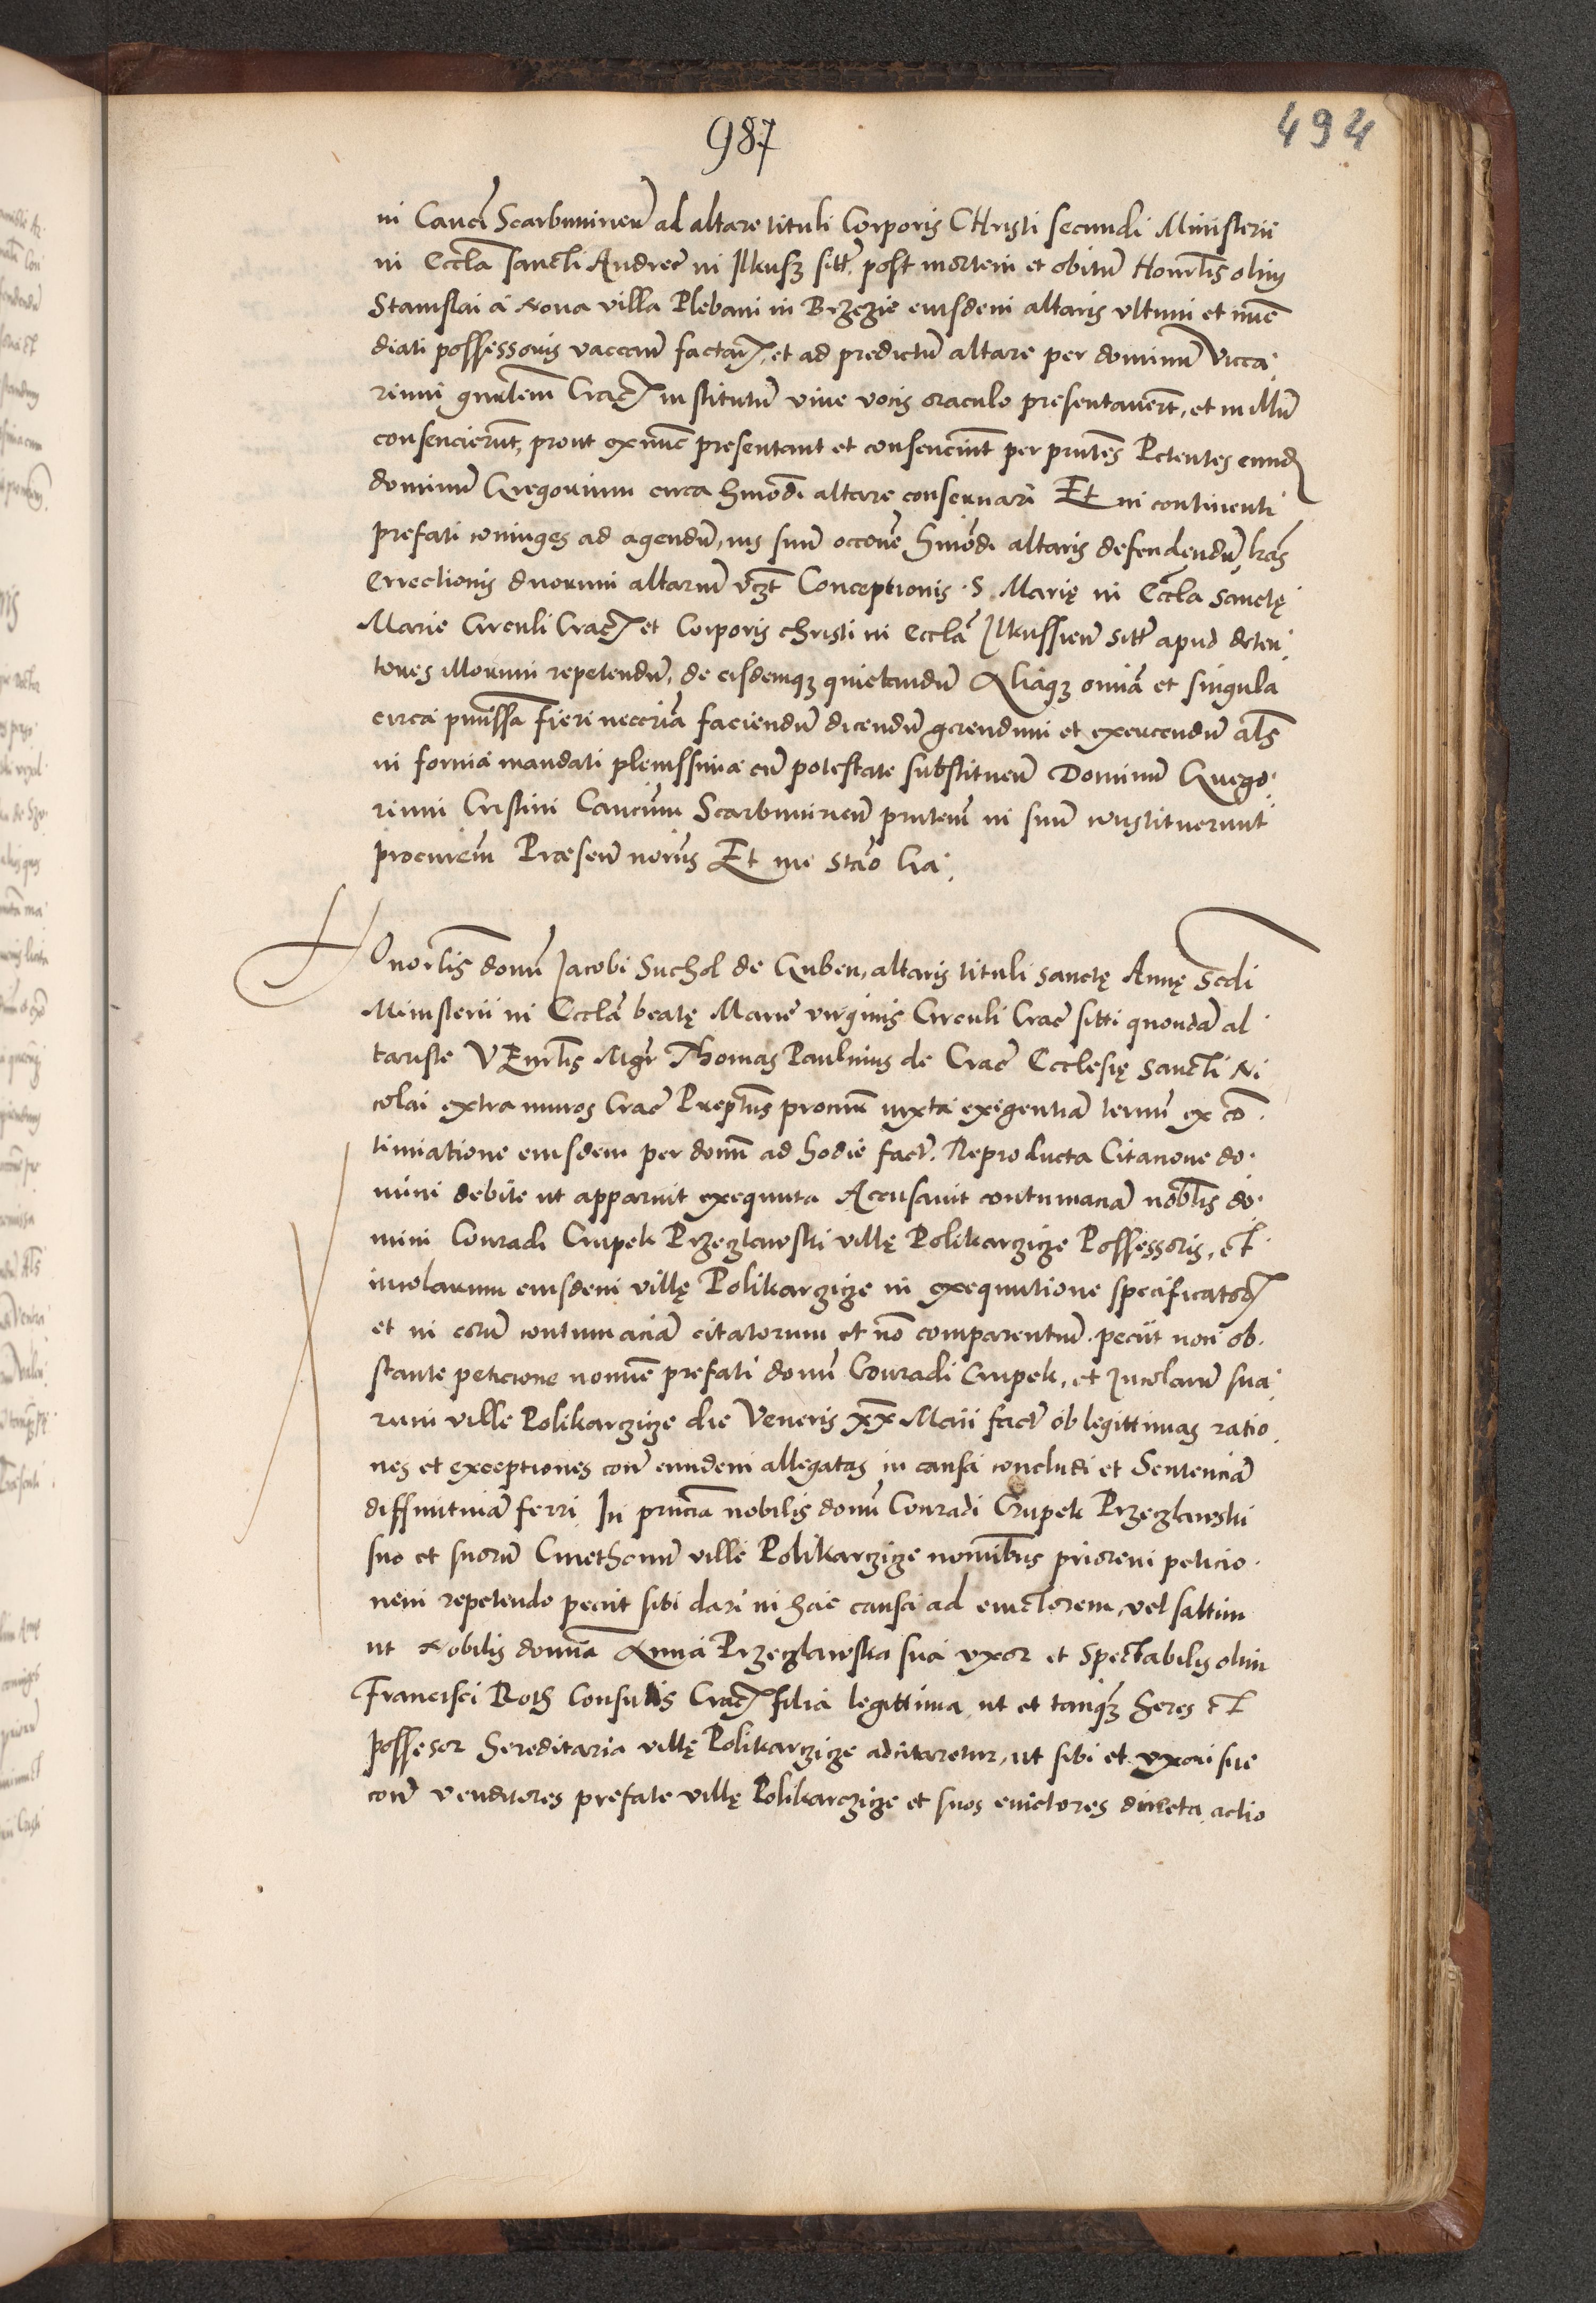 987
494
ni Canci Scarbimirien ad altare tituli Corporis CHristi secundi Ministerii
in Eccla sancti Andree in Ilkusz sitt. post mortem et obitum Honorlis olim
Stanislai a Nova villa Plebani in Brzezie eiusdem altaris ultimi et imme
diati possessoris vaccan factar, et ad predictum altare per dominum Vicca,
rium gnralem Crac institutum vive vocis oraculo presentaverunt, et in illum
consencierunt, prout ex nunc presentant et consenciunt per prntes Petentes eund
dominum Gregorium circa hmodi altare conservari Et in continenti
prefati coniuges ad agendum, ius suum occone hmodi altaris defendendum, lras
Errectionis duorum altarium vzt Conceptionis S. Marię in Eccla Sanctę
Marie Circuli Crac et Corporis christi in Eccla Ilkussien sitt apud deten,
tores illorum repetendum, de eisdemq quietandum Aliaq omia et singula
circa pmissa fieri neccria faciendum dicendum gerendum et exercendum als
in forma mandati plenissima cum potestate substituen Dominum Grego,
rium Cristini Cancum Scarbimirien prntem in suum constituerunt
procurem Præsen noriis Et me Stao Cra,
Honorlis domini Jacobi Suchol de Guben, altaris tituli sanctę Annę Scdi
Ministerii in Eccla beatę Marie virginis Circuli Crac sitti quondam al
tariste VEnrlis Mgr Thomas Paulinus de Crac Ecclesię Sancti Ni
colai extra muros Crac Preptus procur iuxta exigentiam termi ex co
tinuatione eiusdem per domi ad hodie fact. Reproducta Citatione do,
mini debite ut apparuit exequuta Accusavit contumaciam noblis do,
mini Conradi Crupek Przeczlawski villę Polikarczicze Possessoris, et
incolarum eiusdem villę Polikarczicze in exequutione specificator
et in eorum contumaciam citatorum et non comparentium peciit non ob,
stante peticione nomine prefati domi Conradi Crupek, et Incolarum sua,
rum ville Polikarczicze die Veneris XX Maii fact ob legittimas ratio,
nes et exceptiones con eundem allegatas in causa concludi et Sentenciam
diffinitivam ferri In prncia nobilis domi Conradi Crupek Przeczlawski
suo et suorum Cmethonum ville Polikarczicze nominibus priorem peticio,
nem repetendo peciit sibi dari in hac causa ad evictorem, vel saltim
ut Nobilis domina Anna Przeczlawska sua uxor et Spectabilis olim
Francisci Roth Consulis Crac filia legittima, ut et tanqz heres et
possesor hereditaria villę Polikarczicze adcitaretur, ut sibi et uxori sue
con venditores prefate villę Polikarczicze et suos evictores directa actio